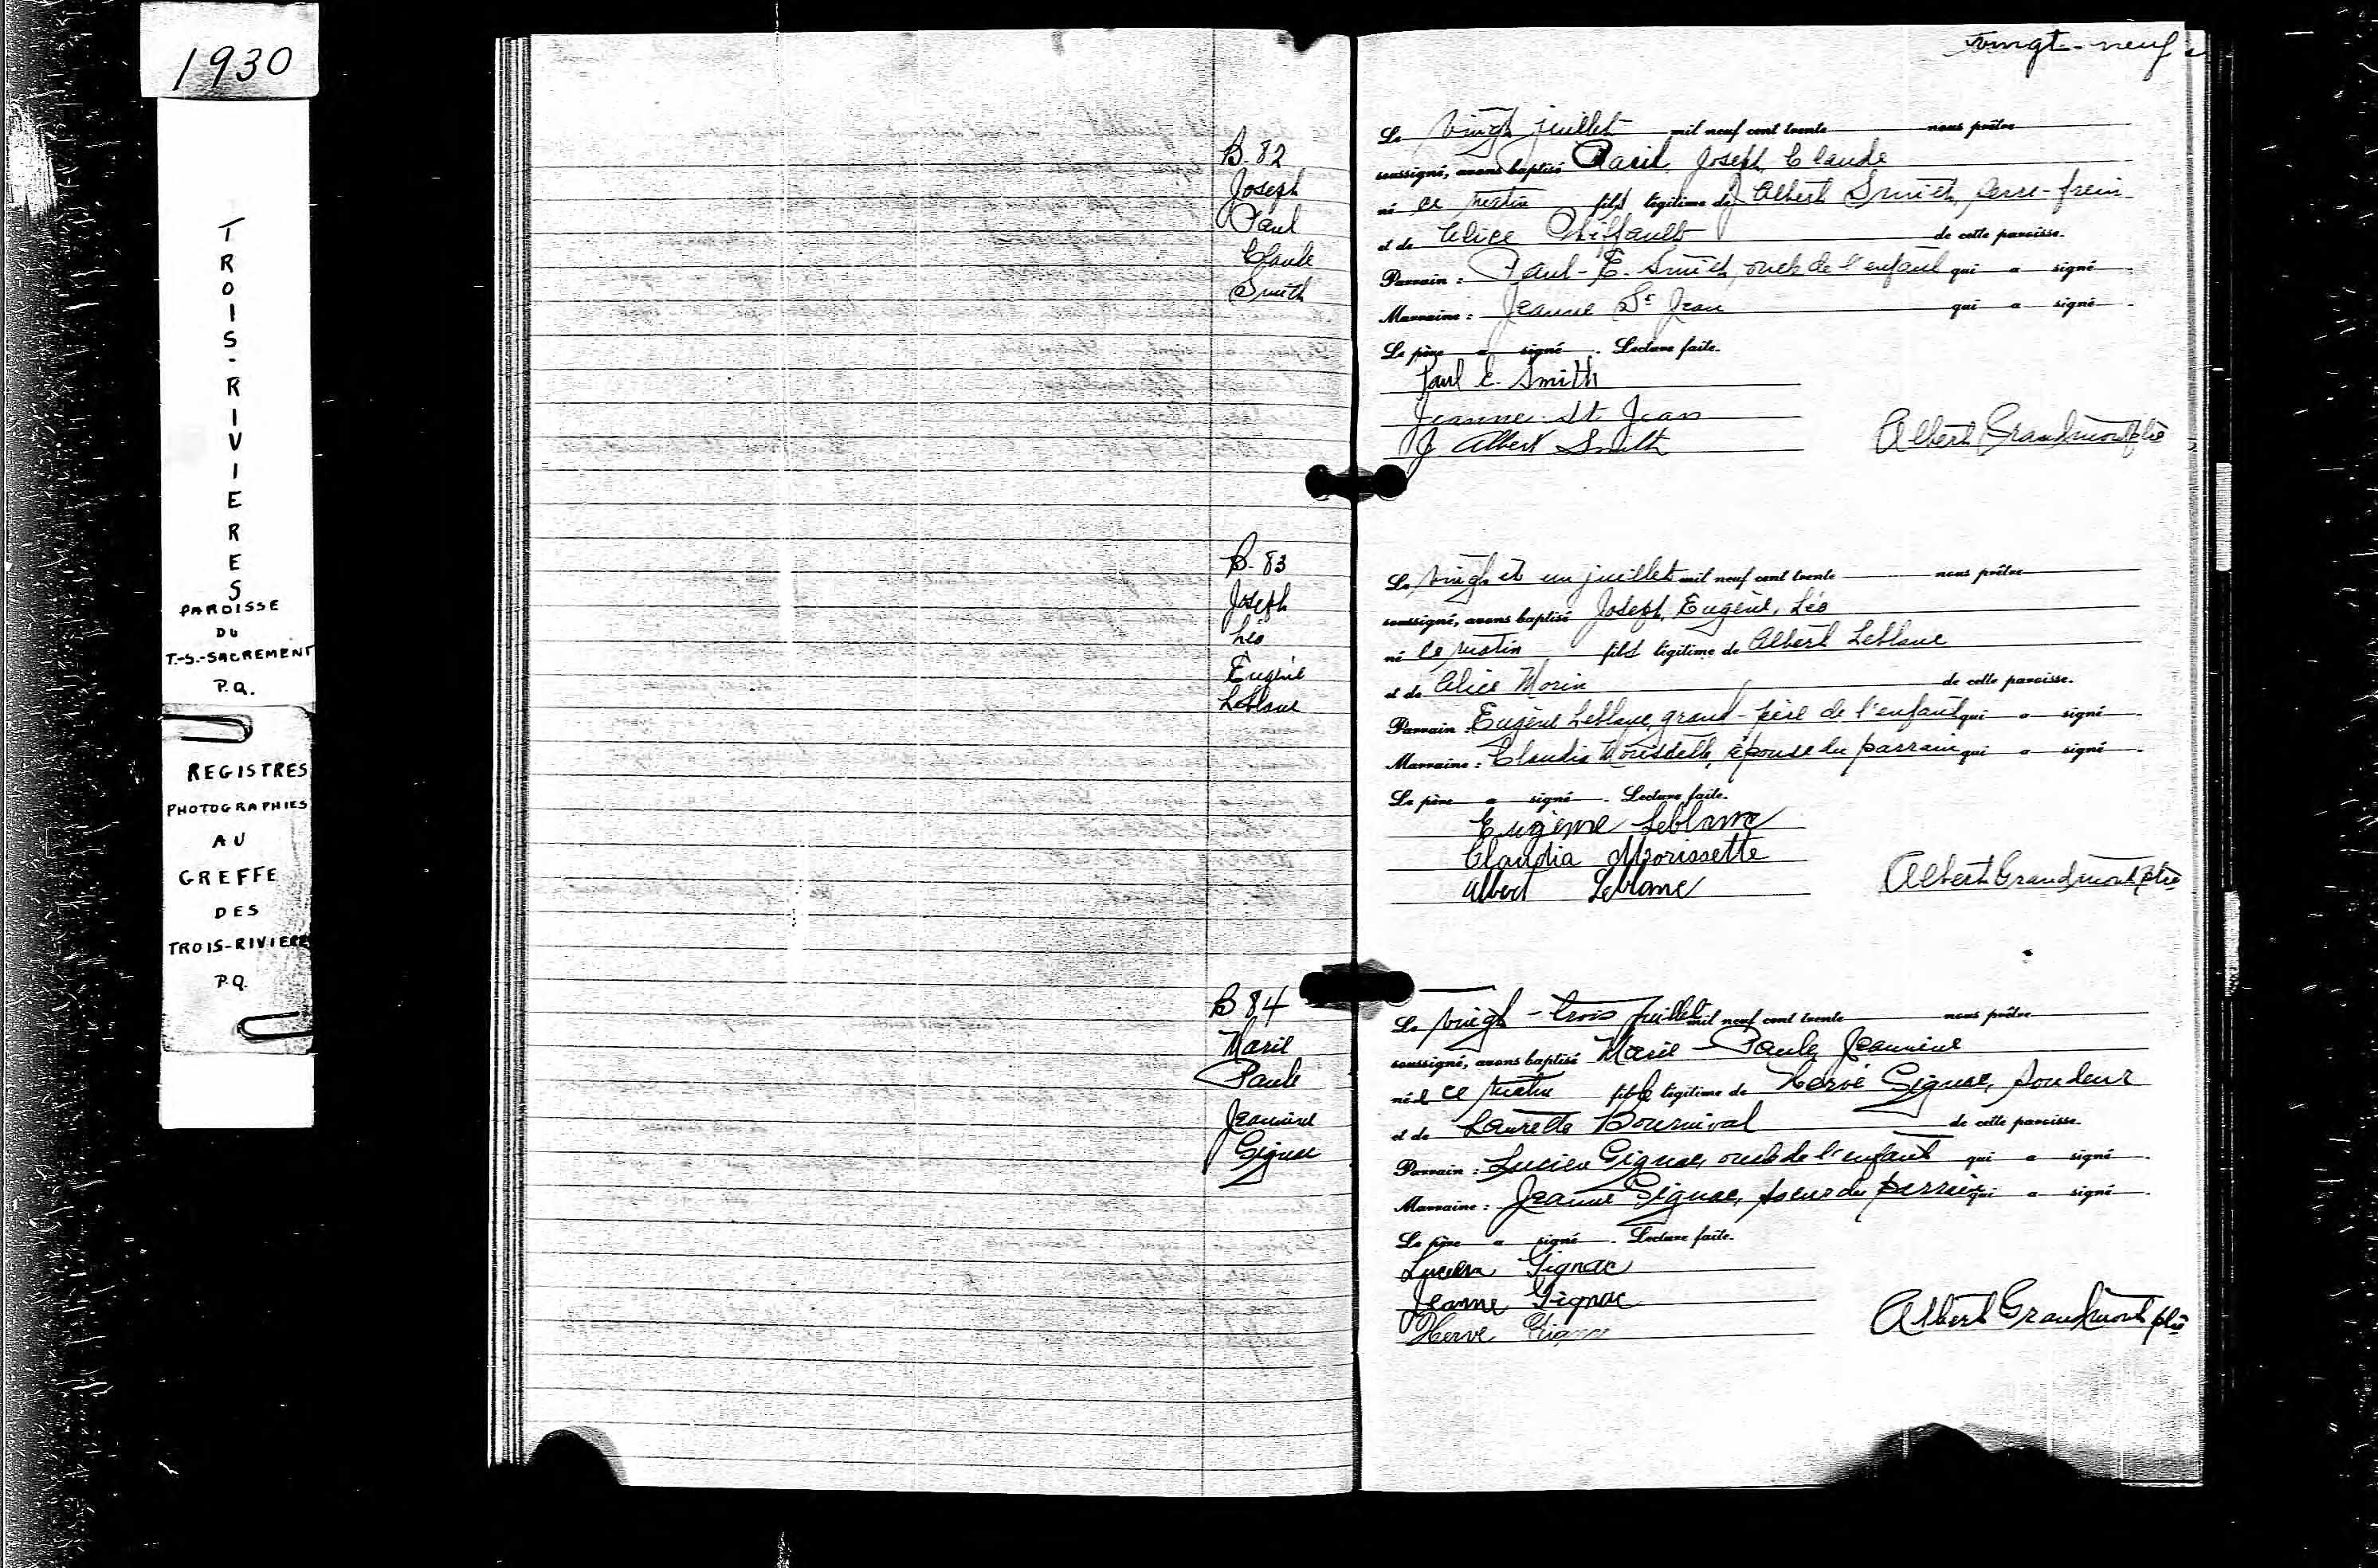 1930
TROIS-RIVIERES
PAROISSE
DU
T.-S.-SACREMENT
P.Q.
REGISTRES
PHOTOGRAPHIES
AU
GREFFE
DES
TROIS-RIVIERES
P.Q.
vingt-neuf
B. 82
Joseph
Paul
Claude
Smith
Le vingt juillet mil neuf cent trente nous prêtre
soussigné, avons baptisé Paul, Joseph, Claude
né ce matin fils légitime de J. Albert Smith, serre-frein
et de Alice Chiffault de cette paroisse.
Parrain : Paul-E. Smith, oncle de l'enfant qui a signé
Marraine : Jeanne St Jean qui a signé
Le père a signé. Lecture faite.
Paul E. Smith
Jeanne St Jean
J Albert Smith
Albert Grandmont ptre
B. 83
Joseph
Léo
Eugène
Leblanc
Le vingt et un juillet mil neuf cent trente nous prêtre
soussigné, avons baptisé Joseph, Eugène, Léo
né ce matin fils légitime de Albert Leblanc
et de Alice Morin de cette paroisse.
Parrain : Eugène Leblanc, grand-père de l'enfant qui a signé
Marraine : Claudia Morissette, épouse du parrain qui a signé
Le père a signé. Lecture faite.
Eugène Leblanc
Claudia Morissette
Albert Leblanc
Albert Grandmont ptre
B 84
Marie
Paule
Jeannine
Gignac
Le vingt-trois juillet mil neuf cent trente nous prêtre
soussigné, avons baptisé Marie-Paule, Jeannine
née ce matin fille légitime de Hervé Gignac, soudeur
et de Laurette Bournival de cette paroisse.
Parrain : Lucien Gignac, oncle de l'enfant qui a signé
Marraine : Jeanne Gignac, soeur du parrain qui a signé
Le père a signé. Lecture faite.
Lucien Gignac
Jeanne Gignac
Herve Gignac
Albert Grandmont ptre